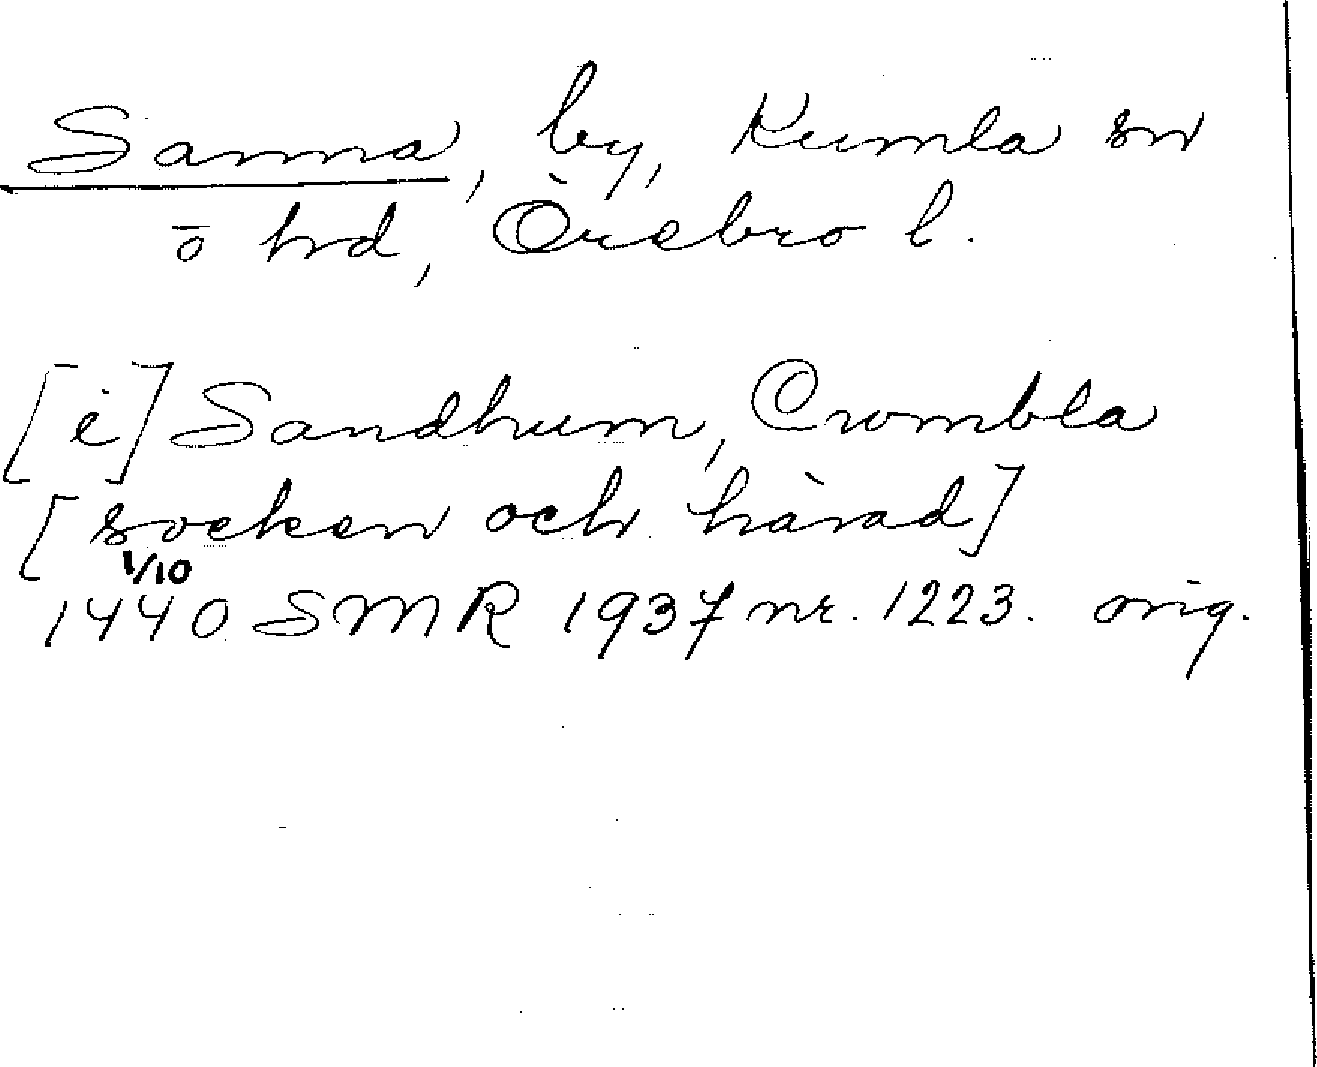 Sanna, by, Kumla sn
o hrd, Örebro l.
[i] Sandhum, Crombla
[socken och härad]
1/10
1440 SMR 1937 nr. 1223. orig.